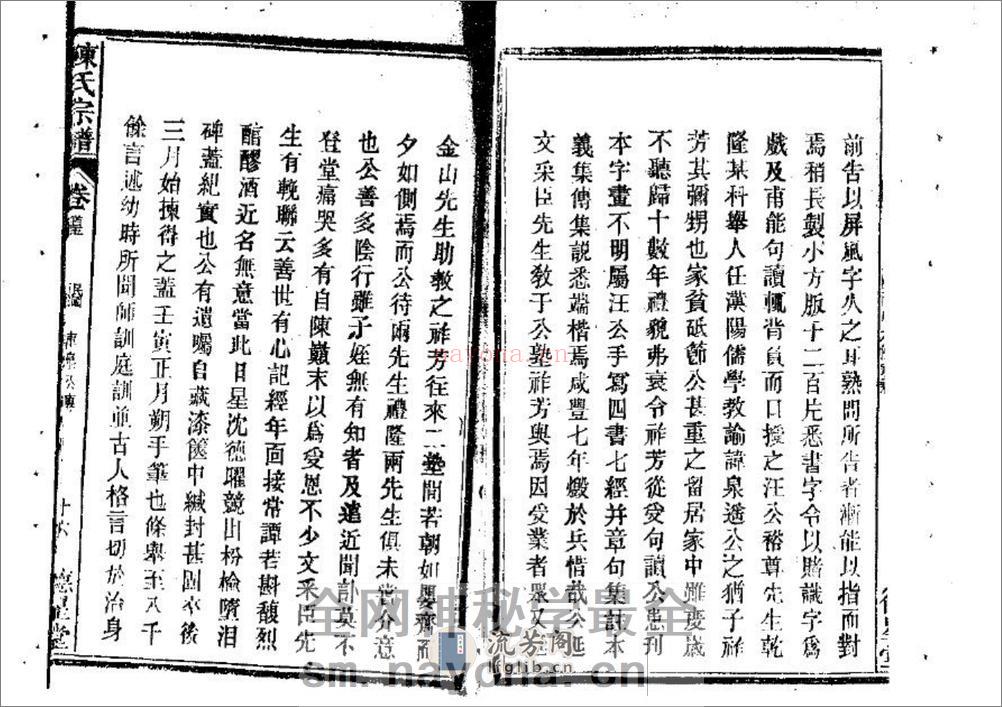 前告以屏風字久之耳熟問所告者漸能以指而對
焉稍長製小方版千二百片悉書字令以賭識字爲
戲及甫能句讀輒背負而口授之汪公裕尊先生乾
隆某科舉人任漢陽儒學教諭諱泉遜公之猶子祚
芳其彌甥也家貧砥節公甚重之留居家中雖慶歲
不聽歸十數年禮貌弗衰令祚芳從受句讀公患刊
本字畫不明屬汪公手寫四書七經并章句集註本
義集傳集說悉端楷焉咸豐七年燬於兵惜哉公延
文采臣先生敎于公塾祚芳與焉因受業者衆又延
金山先生助敎之祚芳往來二塾間若朝如
夕如側焉而公待兩先生禮隆兩先生俱未嘗介意
也公善多陰行雖子姪無有知者及遠近聞訃莫不
登堂痛哭多有自陳巔末以爲受恩不少文采臣先
生有輓聯云善世有心記經年面接常譚若斟馥烈
醅醪酒近名無意當此日星沈德曜競出枌檢墮泪
碑蓋紀實也公有遺囑自藏漆篋中緘封甚固卒後
三月始揀得之蓋壬寅正月朔手筆也條舉至八千
餘言述幼時所聞師訓庭訓並古人格言切於治身
陳氏宗譜
卷
十六
堂
全网神秘学最全
nayona.cn
流芳阁
fglib.cn
sm.nayona.cn